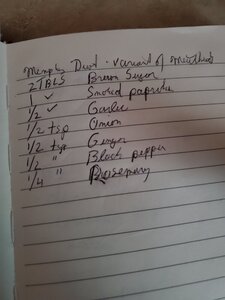 Memphis Dust - Variant of Meathead
2 TBLS Brown Sugar
1 ✓ Smoked paprika
1/2 ✓ Garlic
1/2 tsp Onion
1/2 tsp Ginger
1/2 " Black pepper
1/4 " Rosemary